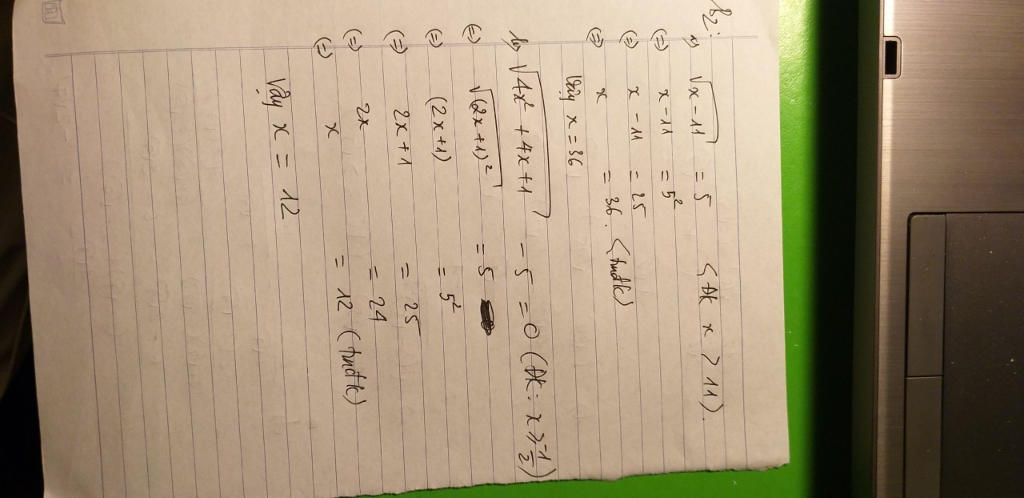 b2:
a) √x-11 = 5 (ĐK x > 11).
(=) x-11 = 5²
(=) x-11 = 25
(=) x = 36. (tmđk)
Vậy x = 36
b) √4x² + 4x + 1 - 5 = 0 (ĐK: x ≥ -1/2)
(=) √(2x+1)² = 5
(=) (2x+1) = 5²
(=) 2x+1 = 25
(=) 2x = 24
(=) x = 12 (tmđk)
Vậy x = 12